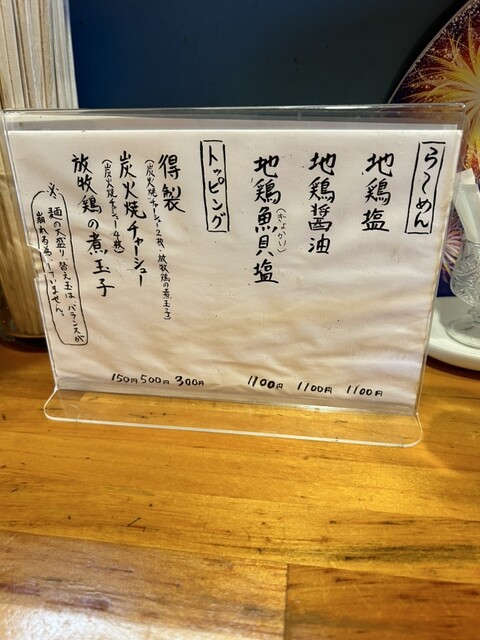 らーめん
地鶏塩 1100円
地鶏醤油 1100円
地鶏魚貝(ぎょかい)塩 1100円
トッピング
得製 300円
(炭火焼チャーシュー2枚・放牧鶏の煮玉子)
炭火焼チャーシュー 500円
(炭火焼チャーシュー4枚)
放牧鶏の煮玉子 150円
※麺の大盛り替え玉はバランスが
崩れる為、していません。